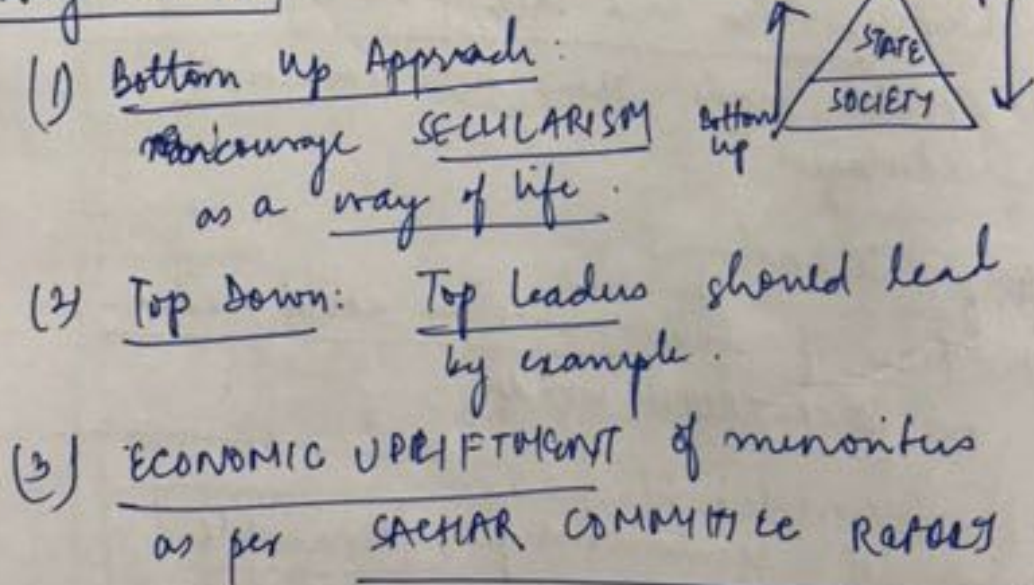 (1) Bottom Up Approach:
encourage SECULARISM
as a way of life.
STATE
SOCIETY
Bottom
up
(2) Top Down: Top Leaders should lead
by example.
(3) ECONOMIC UPLIFTMENT of minorities
as per SACHAR COMMITTEE REPORT